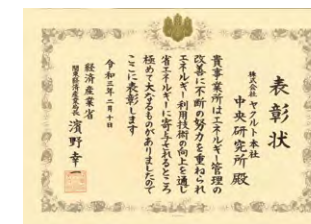 表彰状
株式会社 ヤクルト本社
中央研究所 殿
貴事業所はエネルギー管理の
改善に不断の努力を重ねられ
エネルギー利用技術の向上を通じ
省エネルギーに寄与せれるところ
極めて大なるものがありましたので
ここに表彰します
令和三年二月十日
経済産業省
関東経済産業局長 濱野幸一